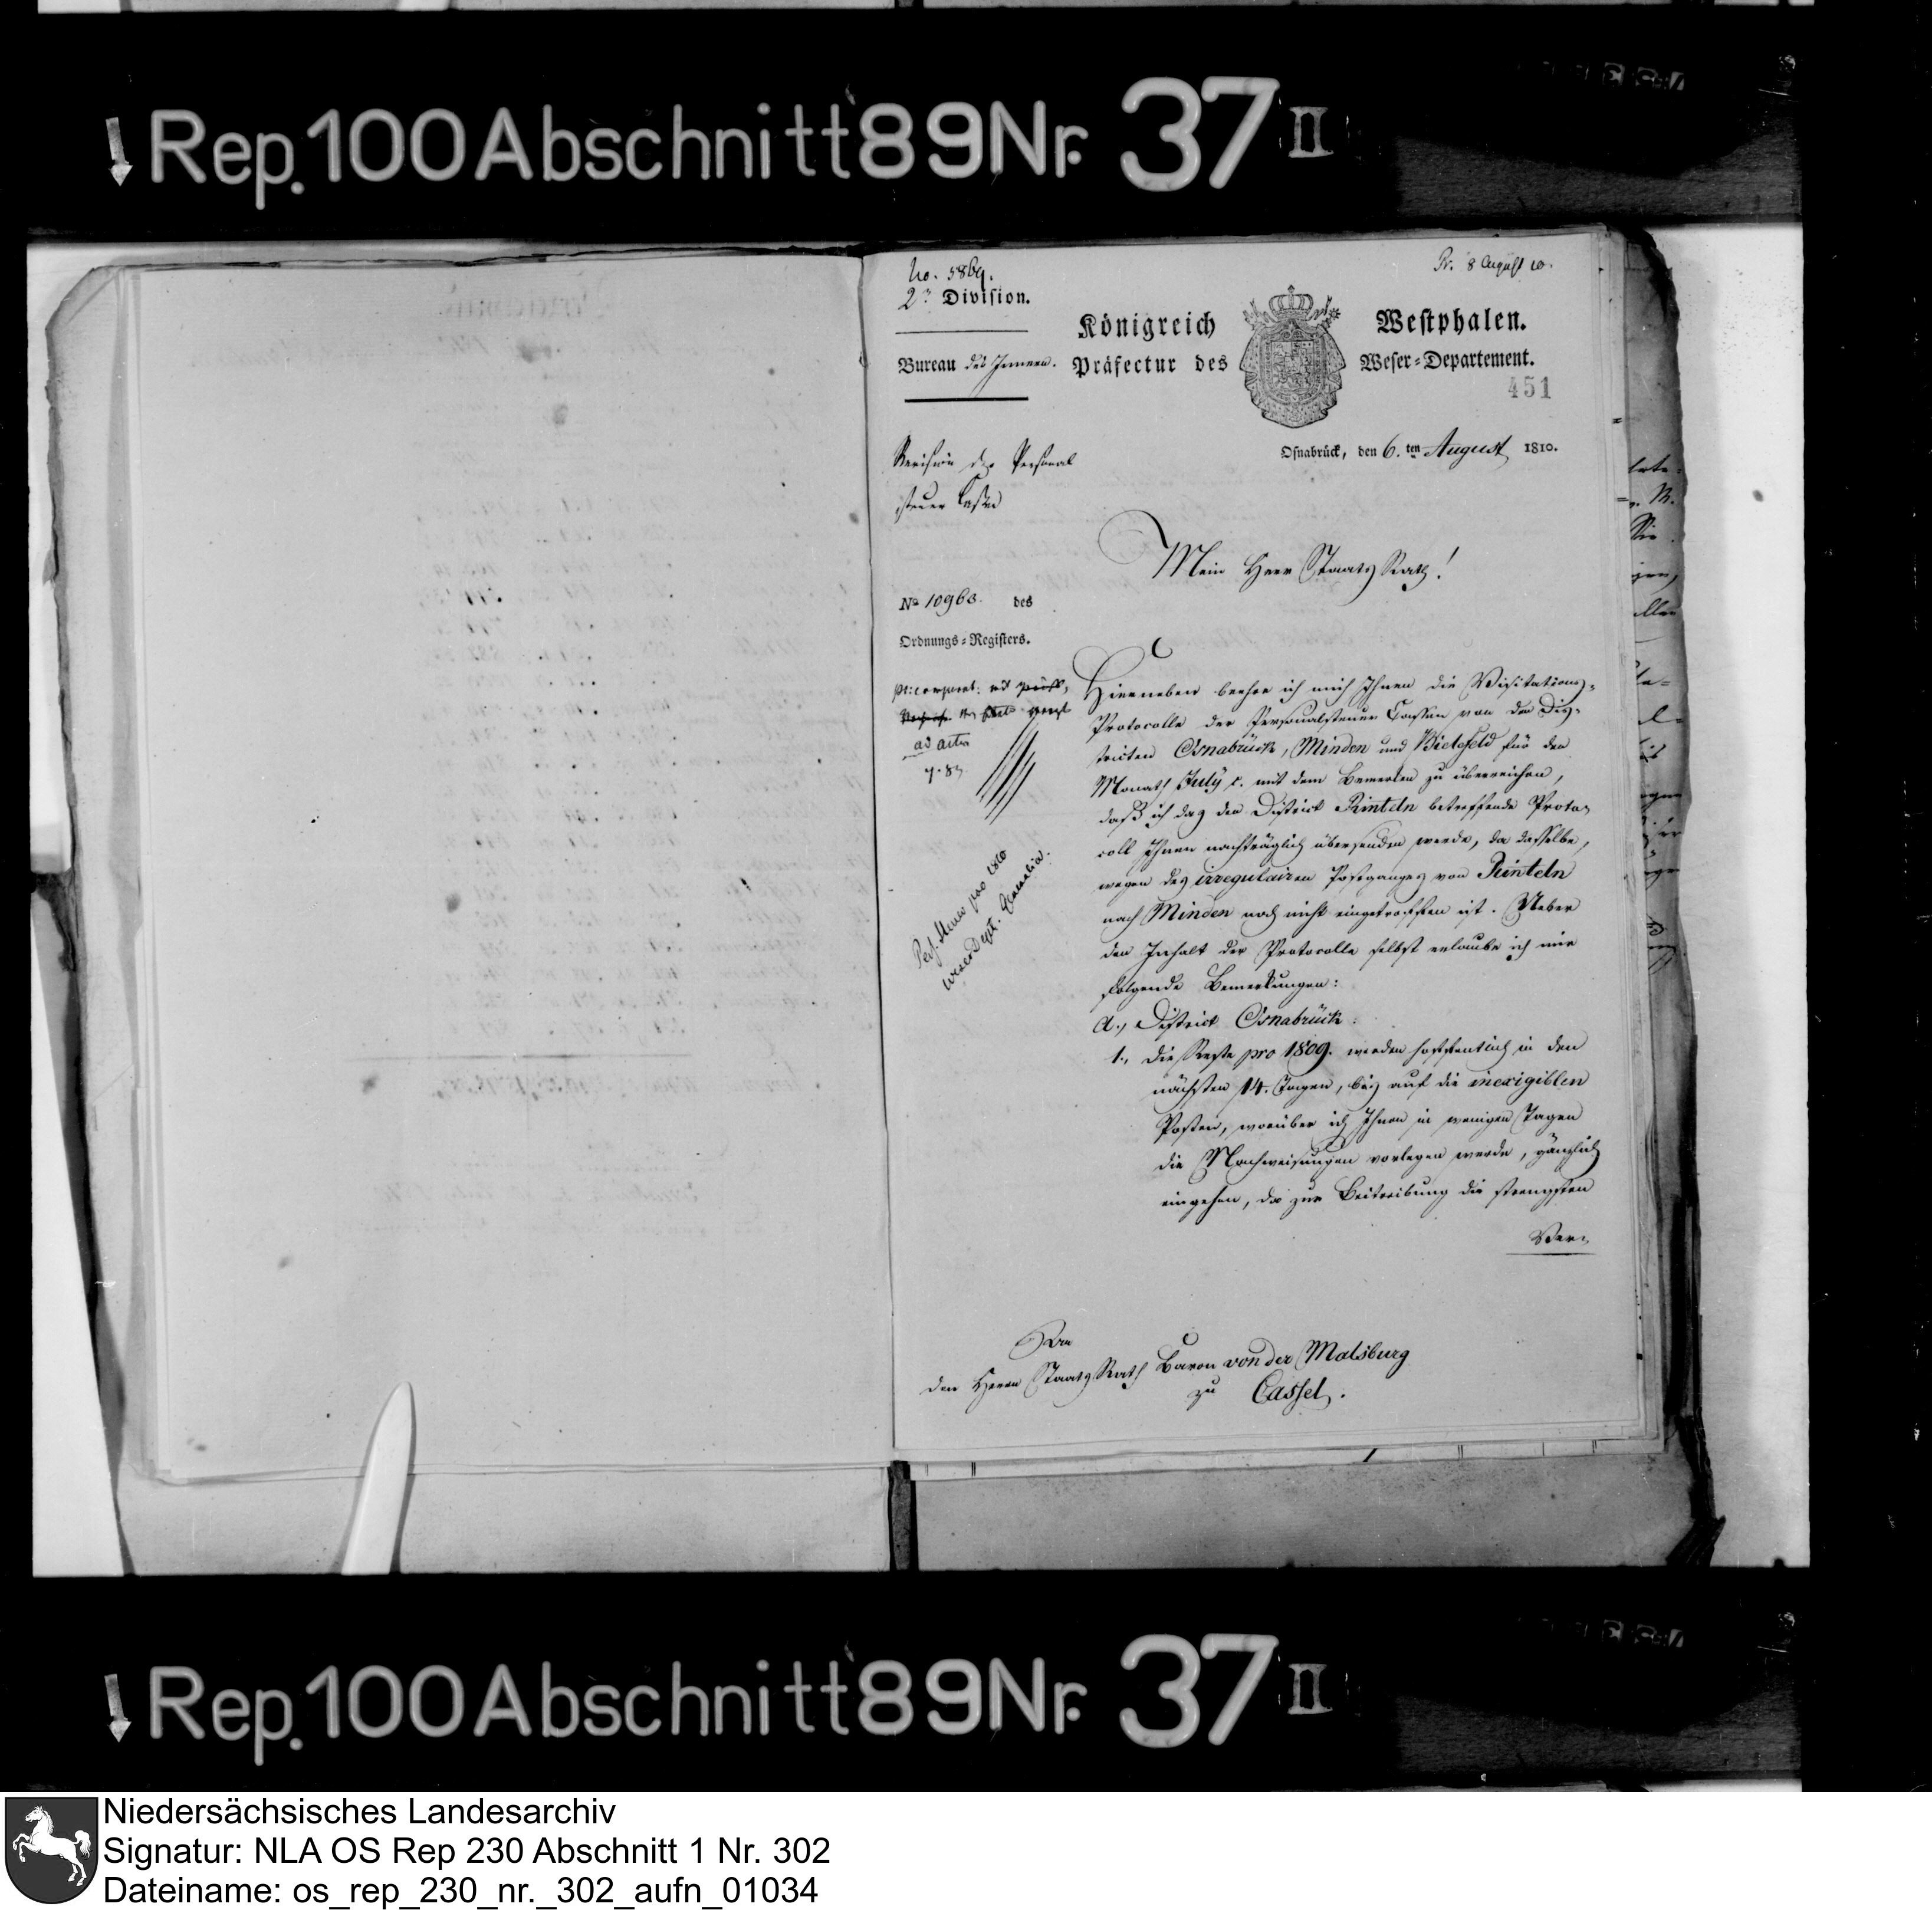 Rep. 100 Abschnitt 89 Nr. 37 II
No. 5869.
Pr. 8 August 10.
2r Diviſion.
Königreich Weſtphalen.
Bureau des Innern.
Präfectur des Weſer=Departement.
451
Oſnabrück, den 6.ten August 1810.
Revision der Personal
steuer Cassen
Mein Herr Staats Rath!
No 10963. des
Ordnungs=Regiſters.
ad acta
Pers. Steuer pro 1810
Weser Dept. Generalia.
Hierneben beehre ich mich Ihnen die Visitations-
Protocolle der Personalsteuer Cassen von den Dis-
tricten Osnabrück, Minden und Bielefeld für den
Monath July c. mit dem Bemerken zu überreichen,
daß ich das den District Rinteln betreffende Proto-
coll Ihnen nachträglich übersenden werde, da dasselbe,
wegen des irregulairen Postganges von Rinteln
nach Minden noch nicht eingetroffen ist. Ueber
den Inhalt der Protocolle selbst erlaube ich mir
folgende Bemerkungen:
A., District Osnabrück:
1., Die Reste pro 1809. werden hoffentlich in den
nächsten 14. Tagen, bis auf die inexigiblen
Posten, worüber ich Ihnen in wenigen Tagen
die Nachweisungen vorlegen werde, gänzlich
eingehen, da zur Beitreibung die strengsten
Ver-
An
den Herrn Staats Rath Baron von der Malsburg
zu Cassel.
Rep. 100 Abschnitt 89 Nr. 37 II
Niedersächsisches Landesarchiv
Signatur: NLA OS Rep 230 Abschnitt 1 Nr. 302
Dateiname: os_rep_230_nr._302_aufn_01034